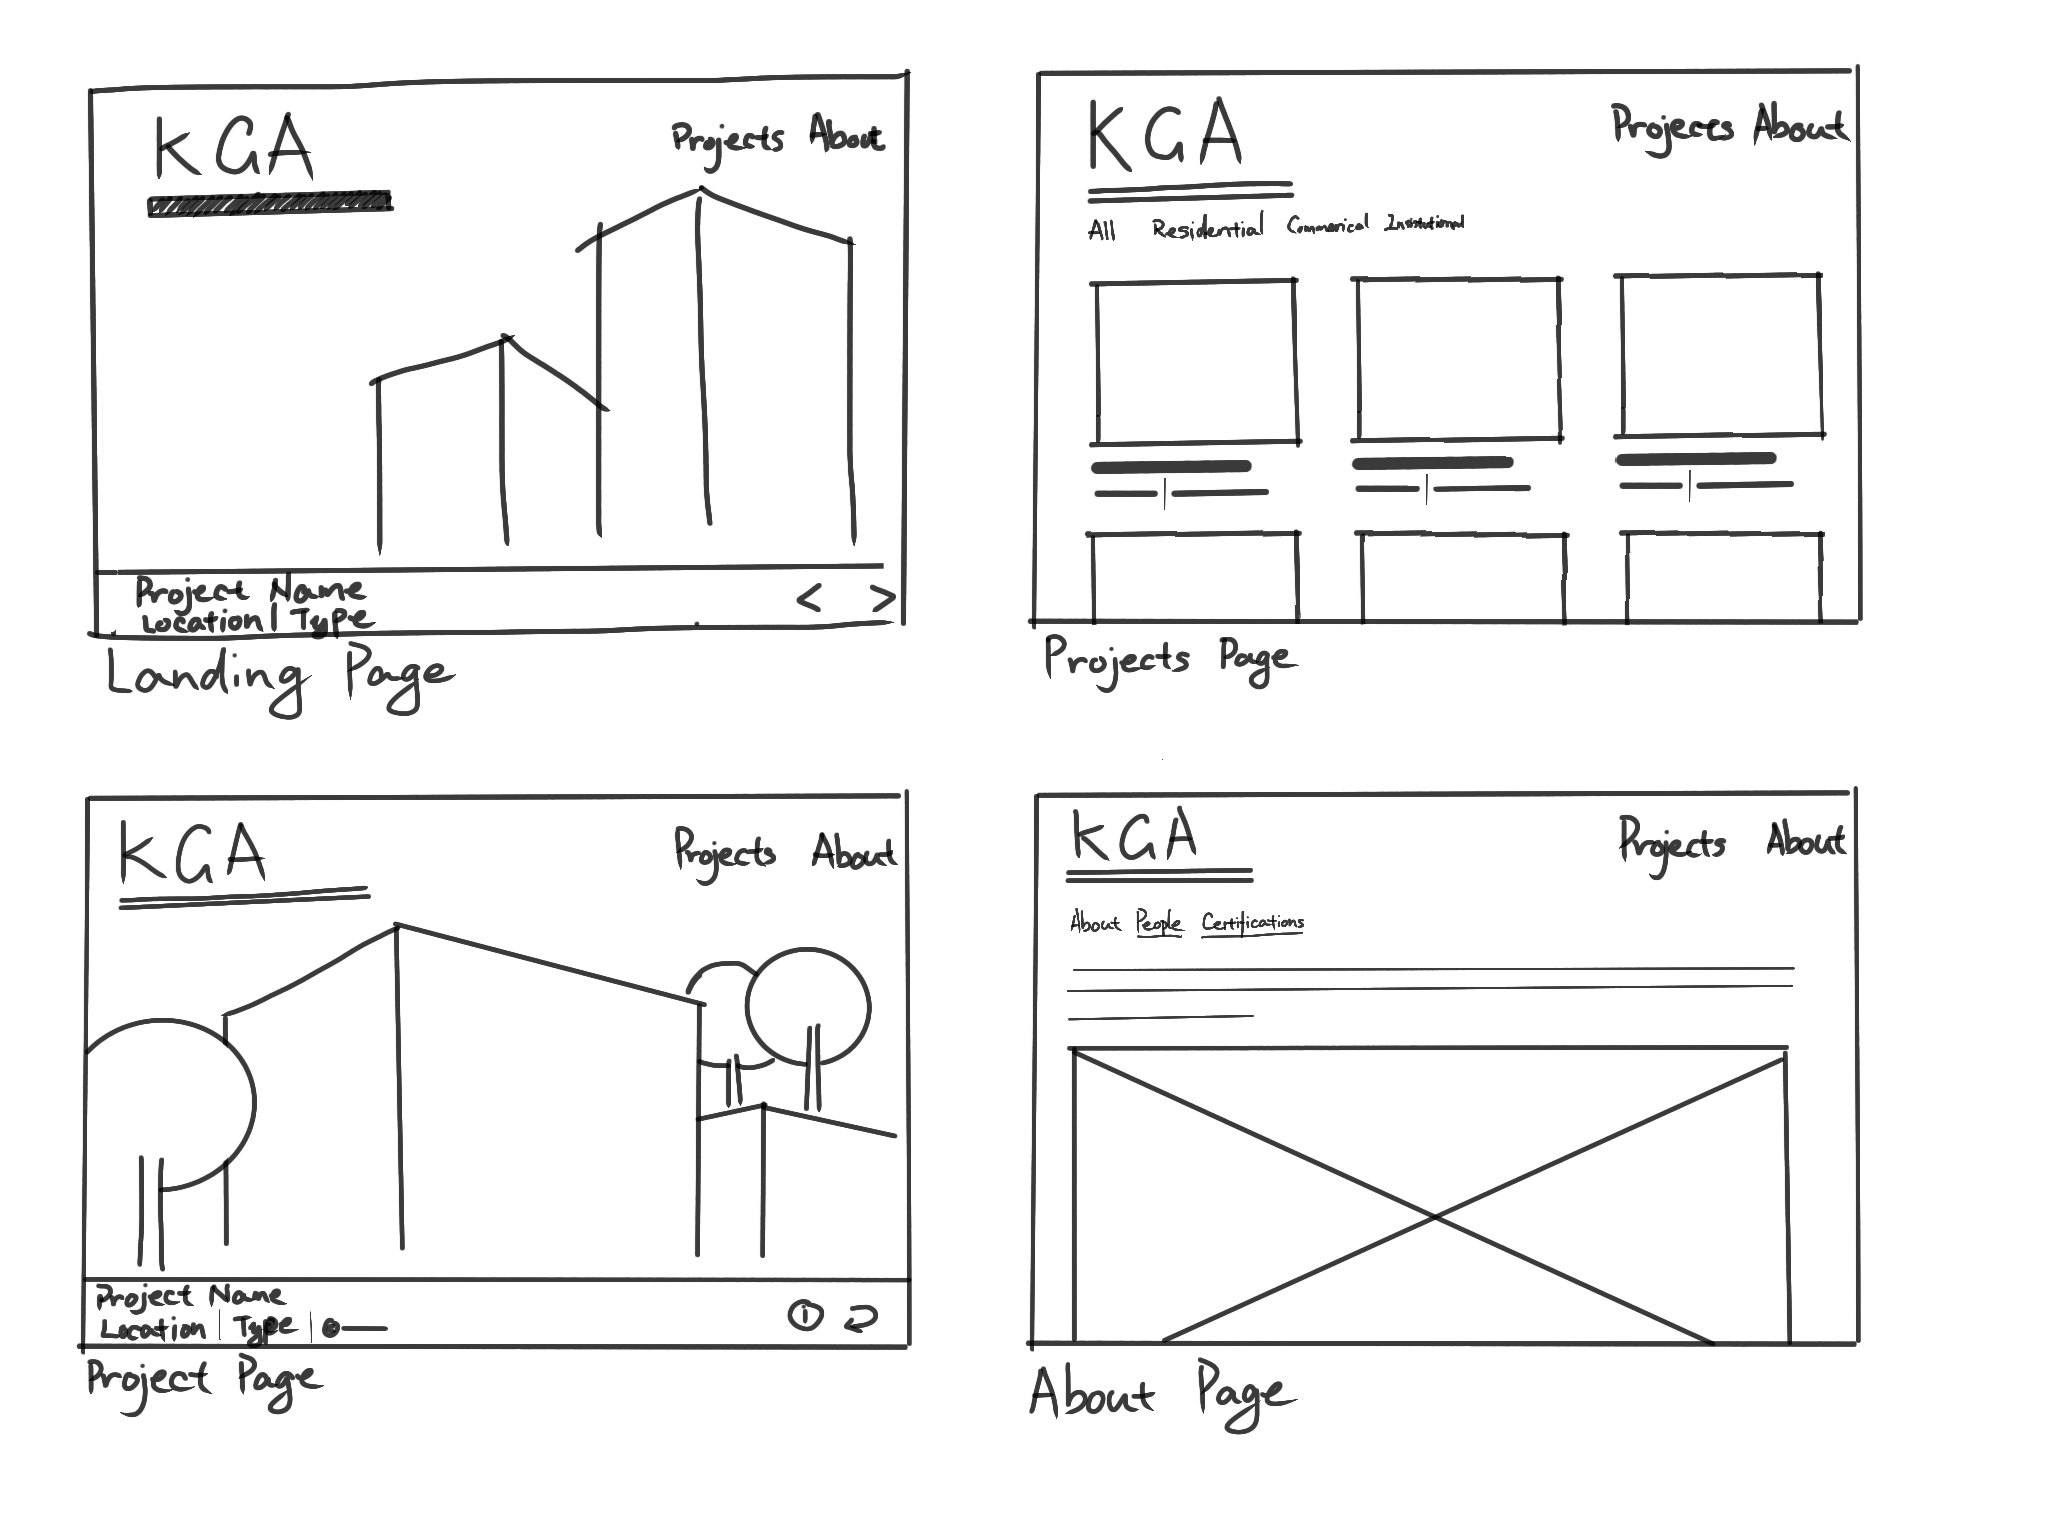 KGA
Projects About
Project Name
Location | Type
< >
Landing Page
KGA
Projects About
All Residential Commerical Institutional
Projects Page
KGA
Projects About
Project Name
Location | Type |
i
Project Page
KGA
Projects About
About People Certifications
About Page